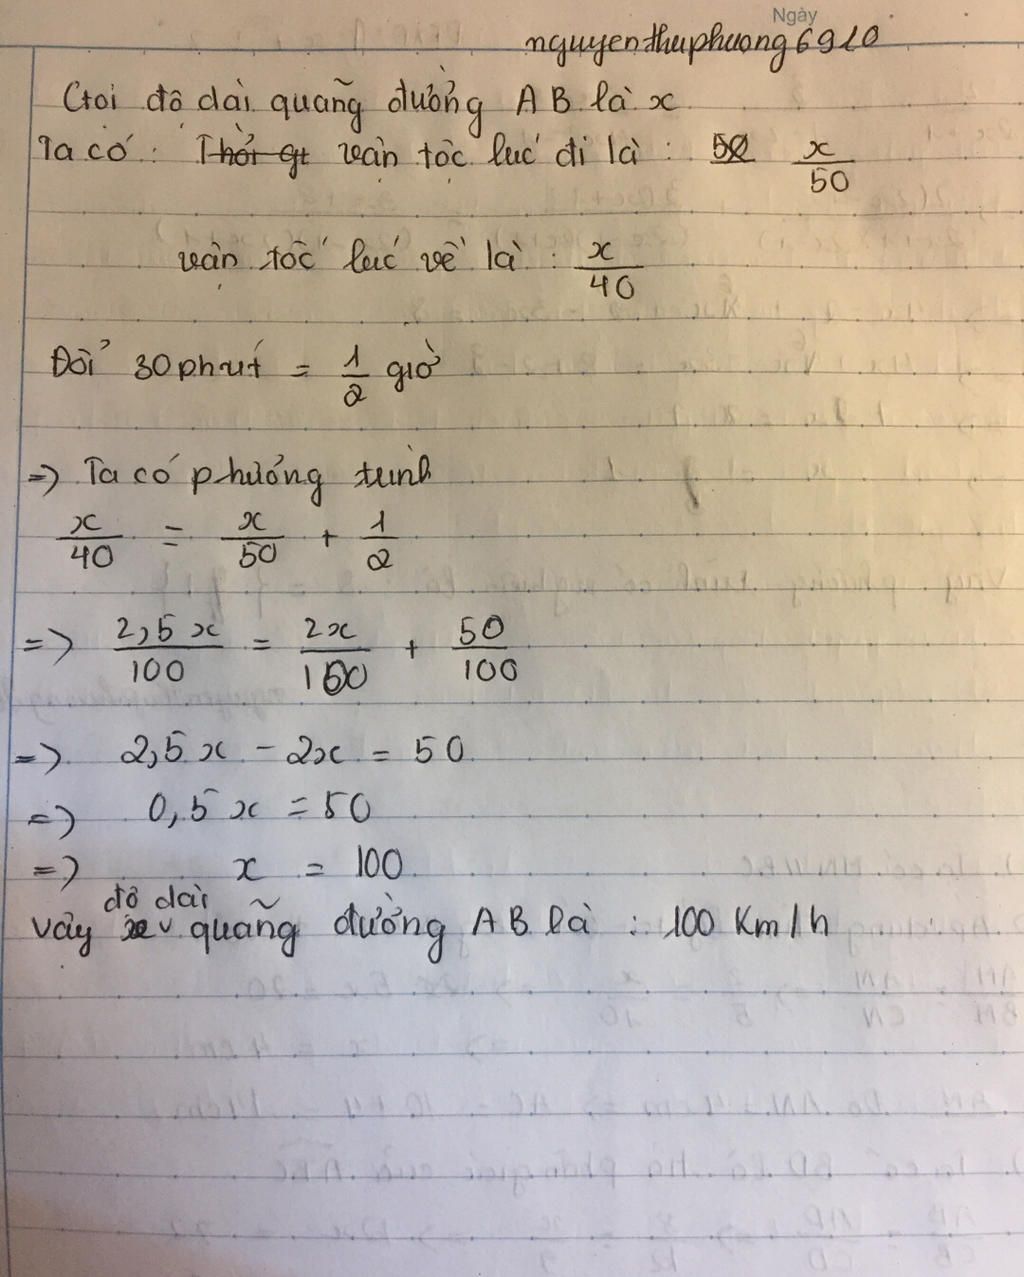 Ngày
nguyenthuphuong6910
Gọi độ dài quãng đường AB là x
Ta có: vận tốc lúc đi là: x/50
vận tốc lúc về là: x/40
Đổi 30 phút = 1/2 giờ
=> Ta có phương trình
x/40 = x/50 + 1/2
=> 2,5x/100 = 2x/100 + 50/100
=> 2,5x - 2x = 50
=> 0,5x = 50
=> x = 100
Vậy độ dài quãng đường AB là: 100 Km/h